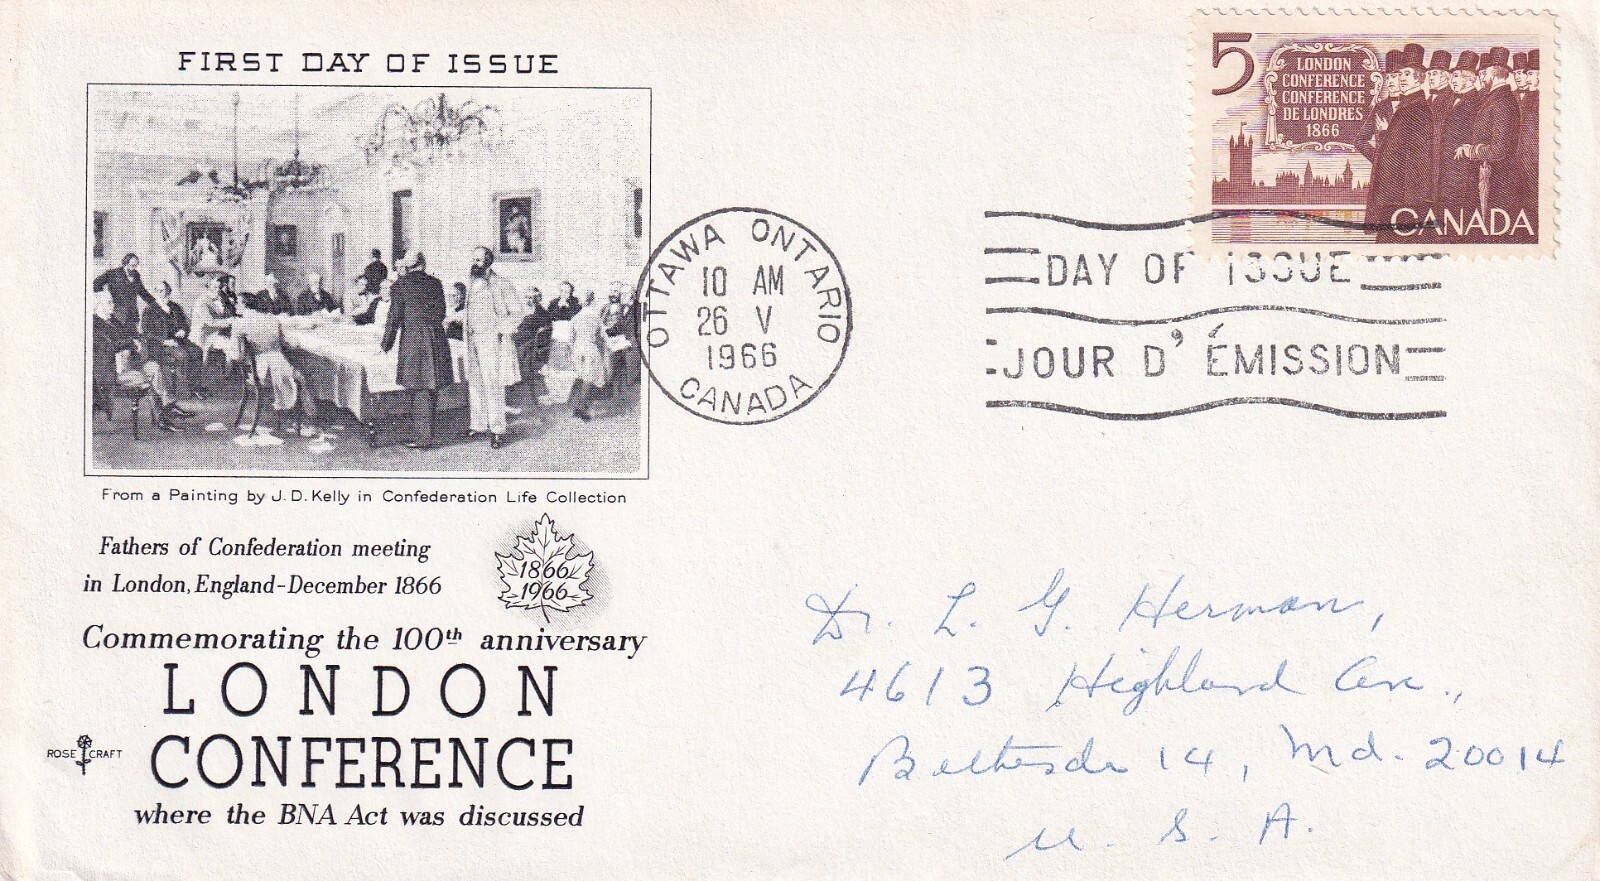 FIRST DAY OF ISSUE
From a Painting by J. D. Kelly in Confederation Life Collection
Fathers of Confederation meeting
in London, England - December 1866
1866
1966
Commemorating the 100th anniversary
LONDON
CONFERENCE
where the BNA Act was discussed
ROSE CRAFT
OTTAWA ONTARIO
10 AM
26 V
1966
CANADA
5
LONDON
CONFERENCE
CONFÉRENCE
DE LONDRES
1866
CANADA
DAY OF ISSUE
JOUR D'ÉMISSION
Dr. L. G. Herman,
4613 Highland Ave.,
Bethesda 14, Md. 20014
U. S. A.